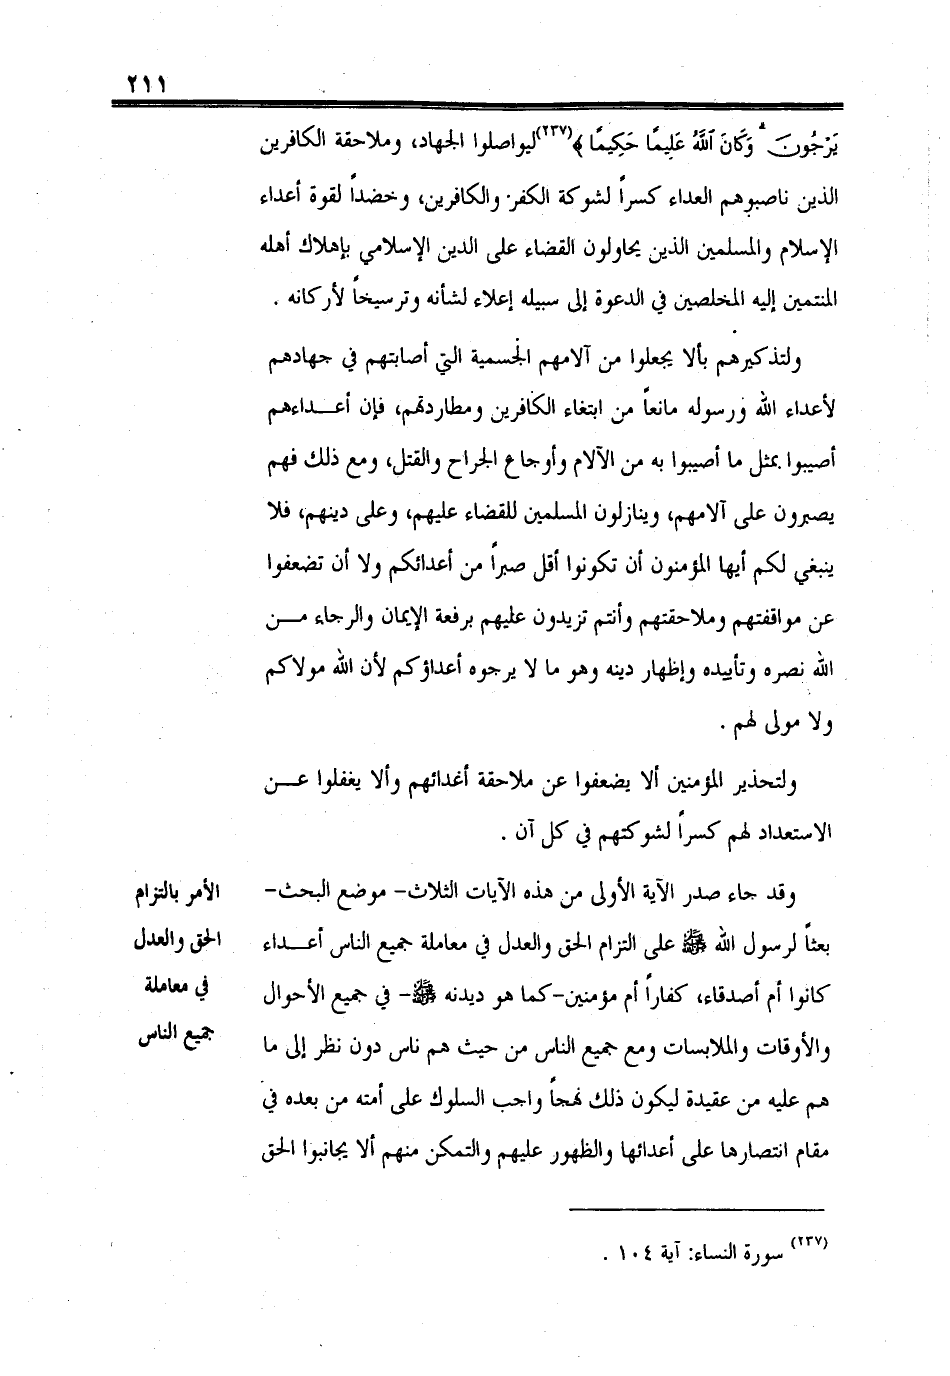 ٢١١
يَرْجُونَ ۗ وَكَانَ ٱللَّهُ عَلِيمًا حَكِيمًا ﴾(٢٣٧) ليواصلوا الجهاد، وملاحقة الكافرين
الذين ناصبوهم العداء كسراً لشوكة الكفر والكافرين، وخضداً لقوة أعداء
الإسلام والمسلمين الذين يحاولون القضاء على الدين الإسلامي بإهلاك أهله
المنتمين إليه المخلصين في الدعوة إلى سبيله إعلاء لشأنه وترسيخاً لأركانه .
ولتذكيرهم بألا يجعلوا من آلامهم الجسمية التي أصابتهم في جهادهم
لأعداء الله ورسوله مانعاً من ابتغاء الكافرين ومطاردتهم، فإن أعـــداءهم
أصيبوا بمثل ما أصيبوا به من الآلام وأوجاع الجراح والقتل، ومع ذلك فهم
يصبرون على آلامهم، وينازلون المسلمين للقضاء عليهم، وعلى دينهم، فلا
ينبغي لكم أيها المؤمنون أن تكونوا أقل صبراً من أعدائكم ولا أن تضعفوا
عن مواقفتهم وملاحقتهم وأنتم تزيدون عليهم برفعة الإيمان والرجاء مـــن
الله نصره وتأييده وإظهار دينه وهو ما لا يرجوه أعداؤكم لأن الله مولاكم
ولا مولى لهم .
ولتحذير المؤمنين ألا يضعفوا عن ملاحقة أغدائهم وألا يغفلوا عـــن
الاستعداد لهم كسراً لشوكتهم في كل آن .
وقد جاء صدر الآية الأولى من هذه الآيات الثلاث- موضع البحث-
بعثاً لرسول الله ﷺ على التزام الحق والعدل في معاملة جميع الناس أعـــداء
كانوا أم أصدقاء، كفاراً أم مؤمنين-كما هو ديدنه ﷺ- في جميع الأحوال
والأوقات والملابسات ومع جميع الناس من حيث هم ناس دون نظر إلى ما
هم عليه من عقيدة ليكون ذلك نهجاً واجب السلوك على أمته من بعده في
مقام انتصارها على أعدائها والظهور عليهم والتمكن منهم ألا يجانبوا الحق
الأمر بالتزام
الحق والعدل
في معاملة
جميع الناس
(٢٣٧) سورة النساء: آية ١٠٤ .